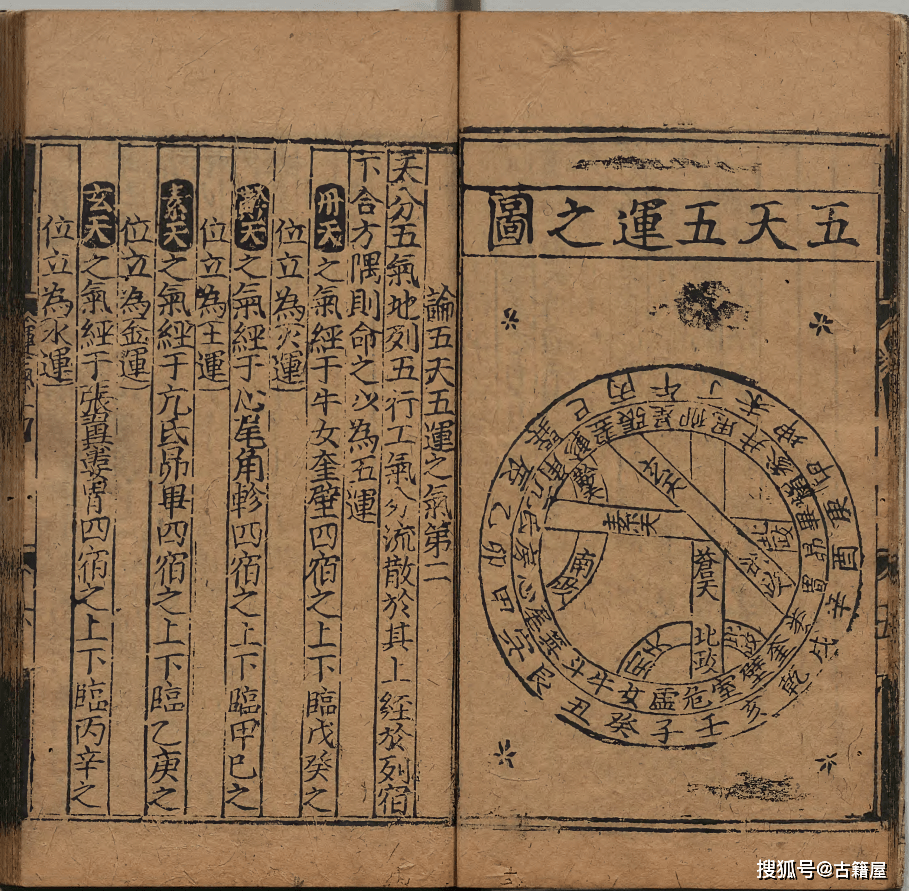 五天五運之圖
丙午丁未坤申庚酉辛戌乾亥壬子癸丑艮寅甲卯乙辰巽巳
張星柳鬼井參觜畢昴胃婁奎壁室危虛女牛斗箕尾心房氐亢角軫翼
素天
蒼天
北政
論五天五運之氣第二
天分五氣地列五行五氣分流散於其上經於列宿
下合方隅則命之以為五運
丹天之氣經于牛女奎壁四宿之上下臨戊癸之
位立為火運
黅天之氣經于心尾角軫四宿之上下臨甲己之
位立為土運
素天之氣經于亢氐昴畢四宿之上下臨乙庚之
位立為金運
玄天之氣經于張翼婁胃四宿之上下臨丙辛之
位立為水運
搜狐号@古籍屋